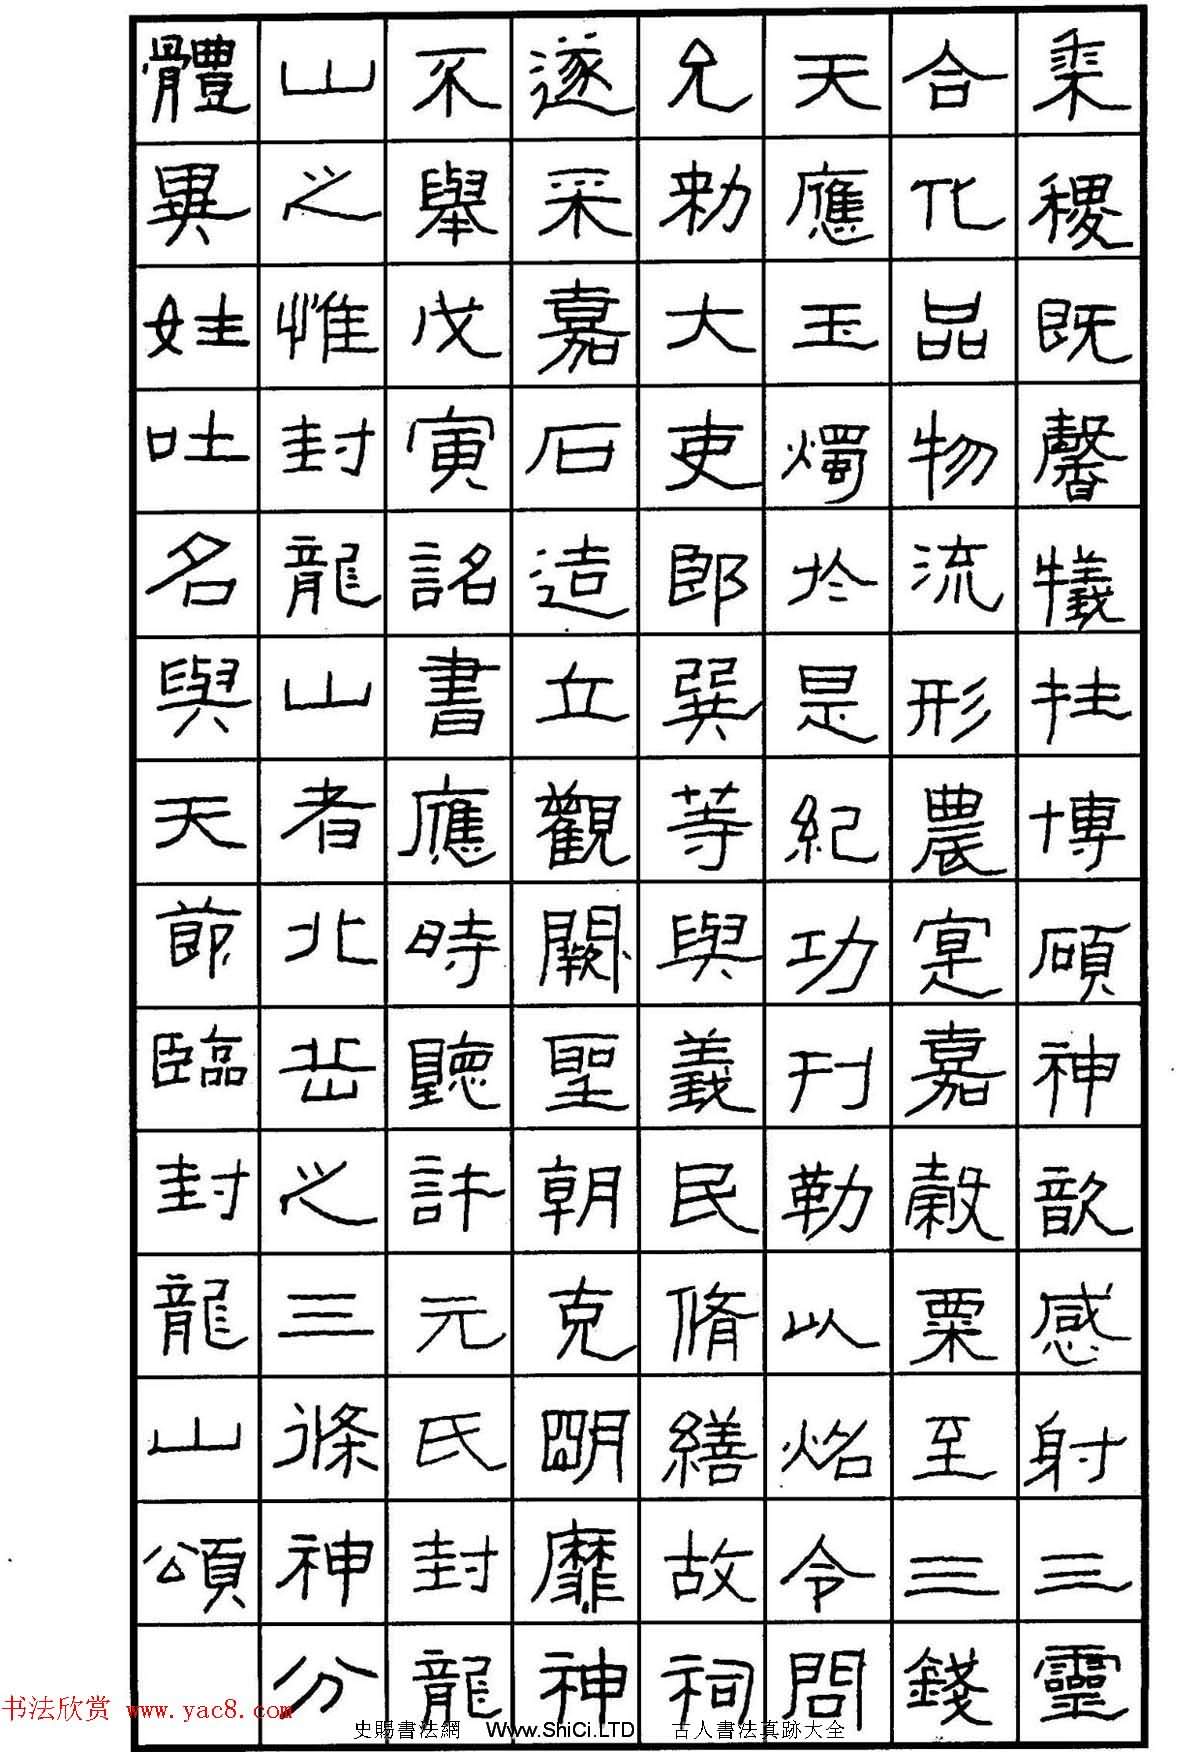 粢稷既馨犧牲博碩神歆感射三靈
合化品物流形農寔嘉穀粟至三錢
天應玉燭於是紀功刊勒以炤令問
允敕大吏郎巽等與義民脩繕故祠
遂采嘉石造立觀闕聖朝克明靡神
不舉戊寅詔書應時聽許元氏封龍
山之惟封龍山者北岳之三條神分
體異娃吐名與天節臨封龍山頌
书法欣赏 www.yac8.com
史賜書法網 Www.ShiCi.LTD 古人書法真跡大全